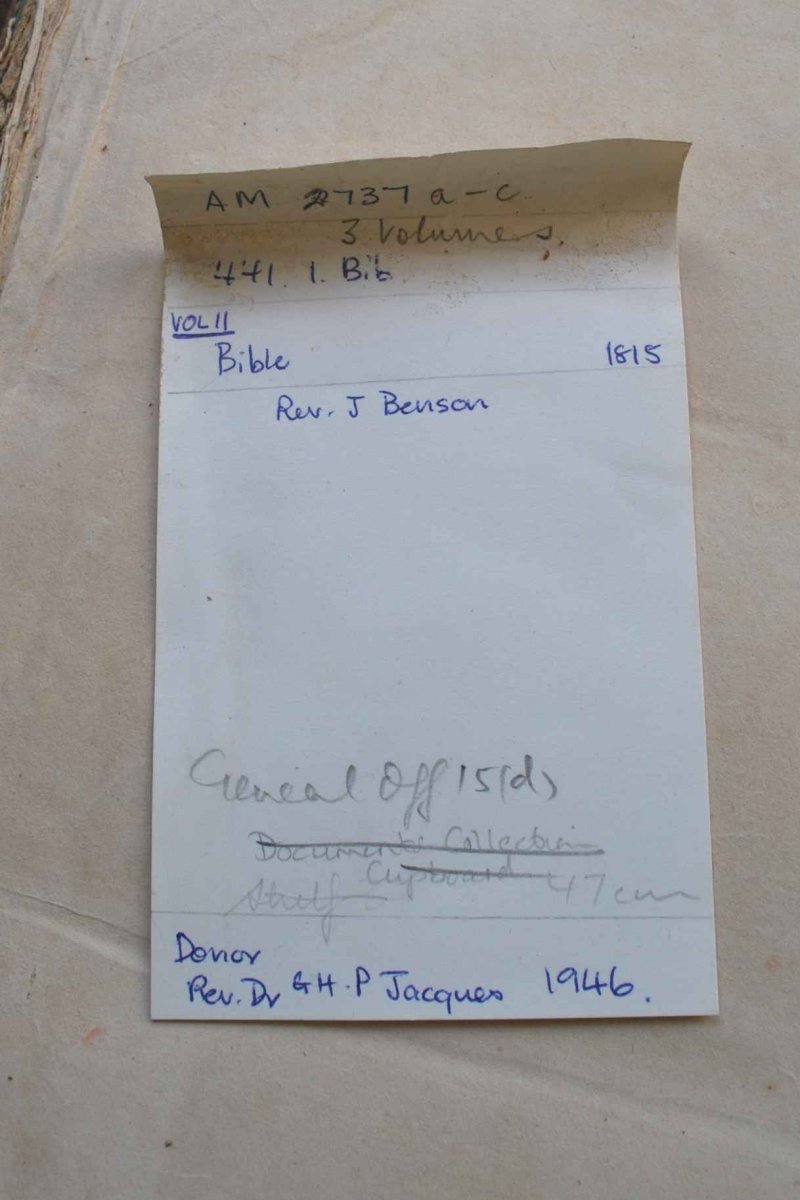 AM 2737 a-c
3 Volumes.
441. 1. Bib
VOL II
Bible 1815
Rev. J Benson
General Off 15(d)
Documents Collection
Cupboard 47cm
Shelf
Donor
Rev. Dr G H. P Jacques 1946.